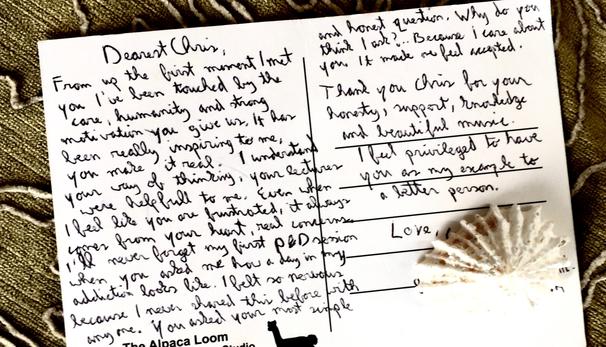 Dearest Chris,
From up the first moment I met
you I've been touched by the
care, humanity and strong
motivation you give us. It has
been really inspiring to me,
you make it real. I understand
your way of thinking, your lectures
were helpfull to me. Even when
I feel like you are frustrated, it always
comes from your heart, real concerns.
I'll never forget my first PBD session
when you asked me how a day in my
addiction looks like. I felt so nervous
because I never shared this before with
anyone. You asked your most simple
The Alpaca Loom
Studio
and honest question. Why do you
think I ask? Because I care about
you. It made me feel accepted.
Thank you Chris for your
honesty, support, knowledge
and beautiful music.
I feel privileged to have
you as my example to
a better person.
Love,